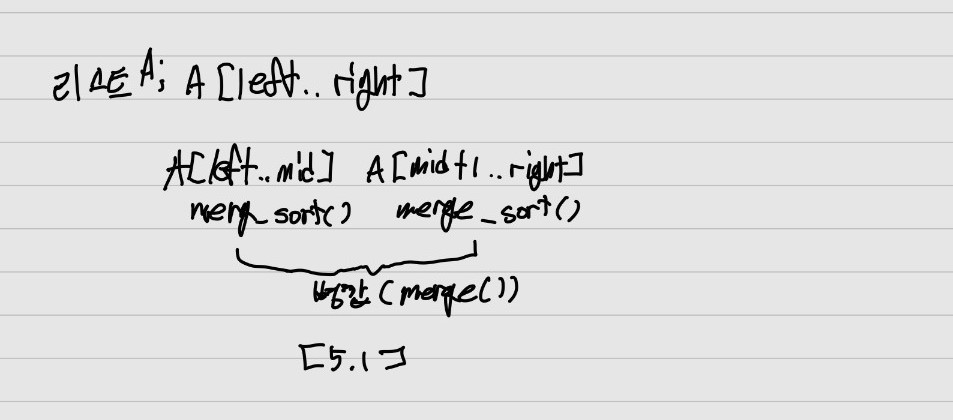 리스트 A; A[left..right]
A[left..mid] A[mid+1..right]
merge_sort() merge_sort()
병합(merge())
[5.1]